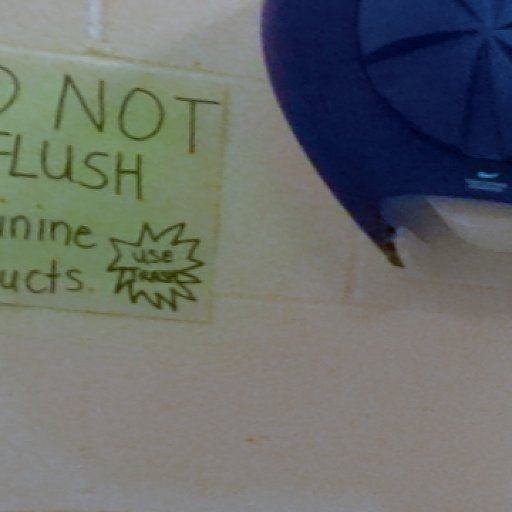 O NOT
FLUSH
inine
ucts.
USE
TRASH